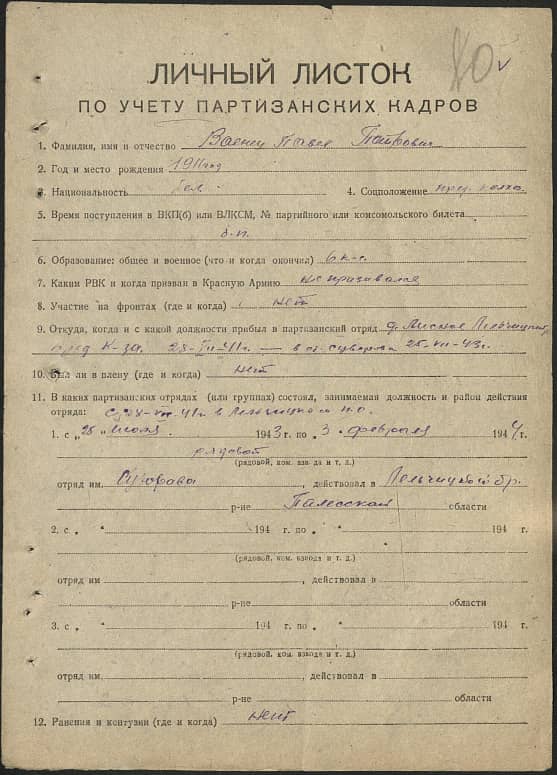 ЛИЧНЫЙ ЛИСТОК
ПО УЧЕТУ ПАРТИЗАНСКИХ КАДРОВ
1. Фамилия, имя и отчество Павел Петрович
2. Год и место рождения 1911 год
3. Национальность бел. 4. Соцположение пред. колхо.
5. Время поступления в ВКП(б) или ВЛКСМ, № партийного или комсомольского билета
б.п.
6. Образование: общее и военное (что и когда окончил) 6 кл.
7. Каким РВК и когда призван в Красную Армию не призывался
8. Участие на фронтах (где и когда) нет
9. Откуда, когда и с какой должности прибыл в партизанский отряд д. Лельчицкий
пред к-за. 41г. — в от. Суворова 25-VII-43г.
10. Был ли в плену (где и когда) нет
11. В каких партизанских отрядах (или группах) состоял, занимаемая должность и район действия
отряда: 41г. в
1. с „25" июля 1943 г. по „3" февраля 1944 г.
рядовой
(рядовой, ком. взвода и т. д.)
отряд им. Суворова, действовал в Лельчицкой бр.
р-не Полесской области
2. с „ " 194 г. по „ " 194 г.
(рядовой, ком. взвода и т. д.)
отряд им. , действовал в
р-не области
3. с „ " 194 г. по „ " 194 г.
(рядовой, ком. взвода и т. д.)
отряд им. , действовал в
р-не области
12. Ранения и контузии (где и когда) нет